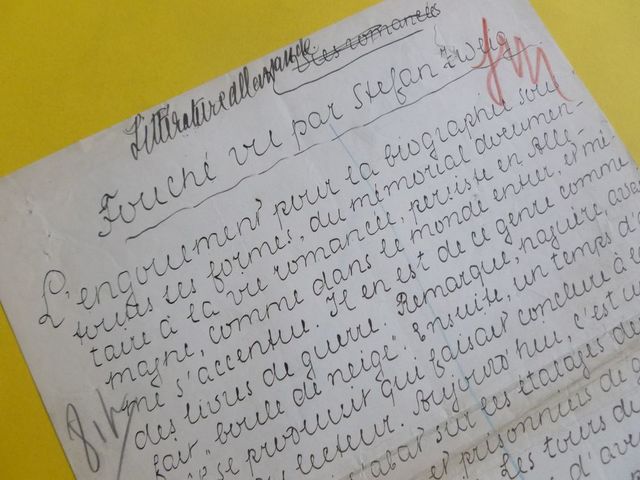 Vies romancées
Littérature allemande
Fouché vu par Stefan Zweig
L'engouement pour la biographie sous
toutes ses formes, du mémorial documen-
taire à la vie romancée, persiste en Alle-
magne, comme dans le monde entier, et mê-
me s'accentue. Il en est de ce genre comme
des livres de guerre. Remarque, naguère, avait
fait "boule de neige". Ensuite, un temps d'
se produisit qui faisait conclure à
lecteur. Aujourd'hui, c'est un
s'abat sur les étalages
et prisonniers de
Les tours de
d'av